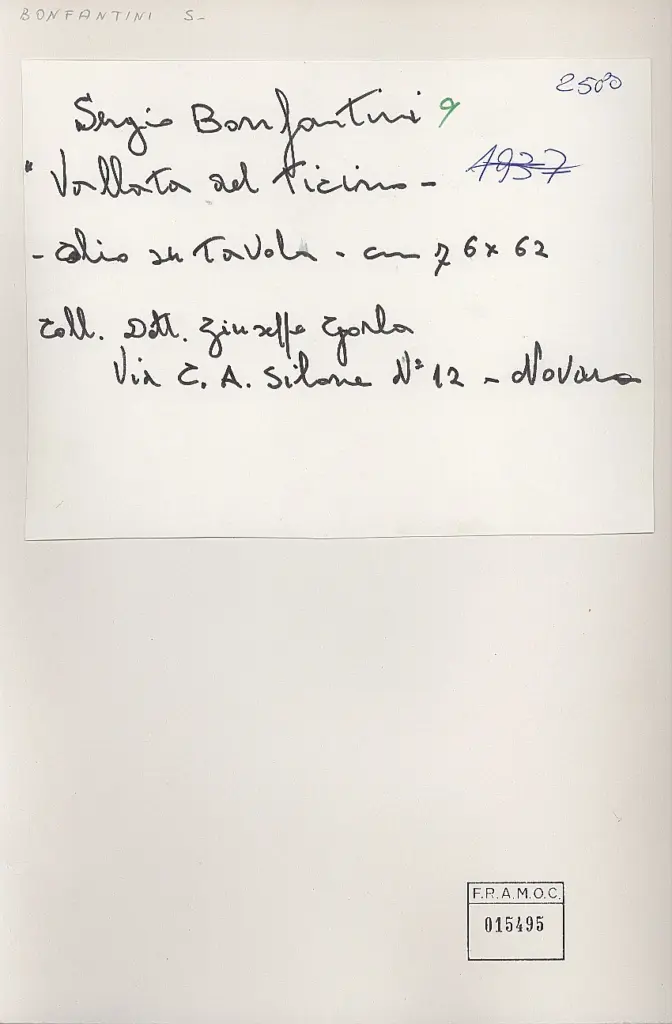 BONFANTINI S-
2500
Sergio Bonfantini 9
"Vallata del Ticino - 1937
- olio su Tavola - cm 76 x 62
Coll. Dott. Giuseppe Gorla
Via C. A. Silone N° 12 - Novara
F.R.A.M.O.C.
015495